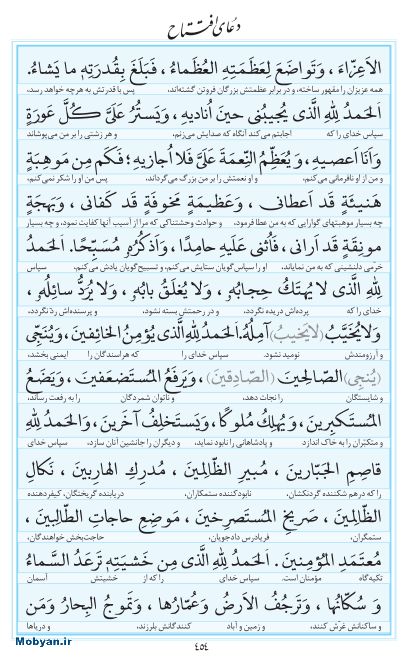 دعای افتتاح
الاَعِزّاءَ ، وَتَواضَعَ لِعَظَمَتِهِ العُظَماءُ ، فَبَلَغَ بِقُدرَتِهِ ما یَشاءُ.
همه عزیزان را مقهور ساخته، و در برابر عظمتش بزرگان فروتن گشته‌اند، پس با قدرتش به هرچه خواهد رسد،
اَلحَمدُ لِلّٰهِ الَّذی یُجیبُنی حینَ اُنادیهِ ، وَیَستُرُ عَلَیَّ کُلَّ عَورَةٍ
سپاس خدای را که اجابتم می‌کند آنگاه که صدایش می‌زنم، و هر زشتی را بر من می‌پوشاند
وَاَنَا اَعصیهِ ، وَیُعَظِّمُ النِّعمَةَ عَلَیَّ فَلا اُجازیهِ ؛ فَکَم مِن مَوهِبَةٍ
و من از او نافرمانی می‌کنم، و او نعمتش را بر من بزرگ می‌گرداند، پس من او را شکر نمی‌کنم،
هَنیئَةٍ قَد اَعطانی ، وَعَظیمَةٍ مَخوفَةٍ قَد کَفانی ، وَبَهجَةٍ
چه بسیار موهبتهای گوارایی که به من عطا فرمود، و حوادث وحشتناکی که مرا از آسیب آنها کفایت نمود، و چه بسیار
مونِقَةٍ قَد اَرانی ، فَاُثنی عَلَیهِ حامِدًا ، وَاَذکُرُهُ مُسَبِّحًا. اَلحَمدُ
خرمی دلنشینی که به من نمایاند، او را سپاس‌گویان ستایش می‌کنم، و تسبیح‌گویان یادش می‌کنم، سپاس
لِلّٰهِ الَّذی لا یُهتَکُ حِجابُهُ ، وَلا یُغلَقُ بابُهُ ، وَلا یُرَدُّ سائِلُهُ ،
خدای را که پرده‌اش دریده نگردد، و در رحمتش بسته نشود، و پرسنده‌اش ردّ نگردد،
وَلا یُخَیَّبُ (لا یَخیبُ) آمِلُهُ. اَلحَمدُ لِلّٰهِ الَّذی یُؤمِنُ الخائِفینَ ، وَیُنَجِّی
و آرزومندش نومید نشود. سپاس خدای را که هراسندگان را ایمنی بخشد،
(یُنجِی) الصّالِحینَ (الصّادِقینَ) ، وَیَرفَعُ المُستَضعَفینَ ، وَیَضَعُ
و شایستگان را نجات دهد، و ناتوان شمردگان را به رفعت رساند،
المُستَکبِرینَ ، وَیُهلِکُ مُلوکًا ، وَیَستَخلِفُ آخَرینَ ، وَالحَمدُ لِلّٰهِ
و متکبّران را به خاک اندازد و پادشاهانی را نابود نماید، و دیگران را جانشین آنان سازد، و سپاس خدای
قاصِمِ الجَبّارینَ ، مُبیرِ الظّالِمینَ ، مُدرِکِ الهارِبینَ ، نَکالِ
را که درهم شکننده گردنکشان، نابودکننده ستمکاران، دریابنده گریختگان، کیفردهنده
الظّالِمینَ ، صَریخِ المُستَصرِخینَ ، مَوضِعِ حاجاتِ الطّالِبینَ ،
ستمگران، فریادرس دادجویان، حاجت‌بخش خواهندگان،
مُعتَمَدِ المُؤمِنینَ. اَلحَمدُ لِلّٰهِ الَّذی مِن خَشیَتِهِ تَرعَدُ السَّماءُ
تکیه‌گاه مؤمنان است. سپاس خدای را که از خشیتش آسمان
وَ سُکّانُها ، وَتَرجُفُ الاَرضُ وَعُمّارُها ، وَتَموجُ البِحارُ وَمَن
و ساکنانش غرّش کنند، و زمین و آباد کنندگانش بلرزند، و دریاها
Mobyan.ir
٤٥٤